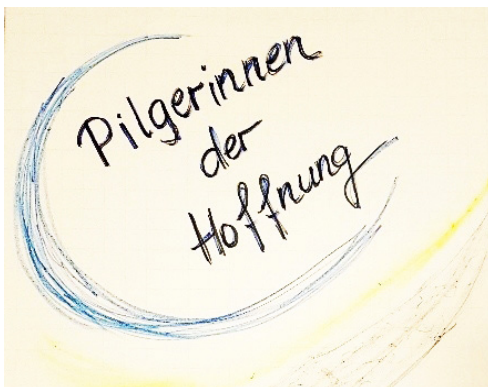 Pilgerinnen
der
Hoffnung